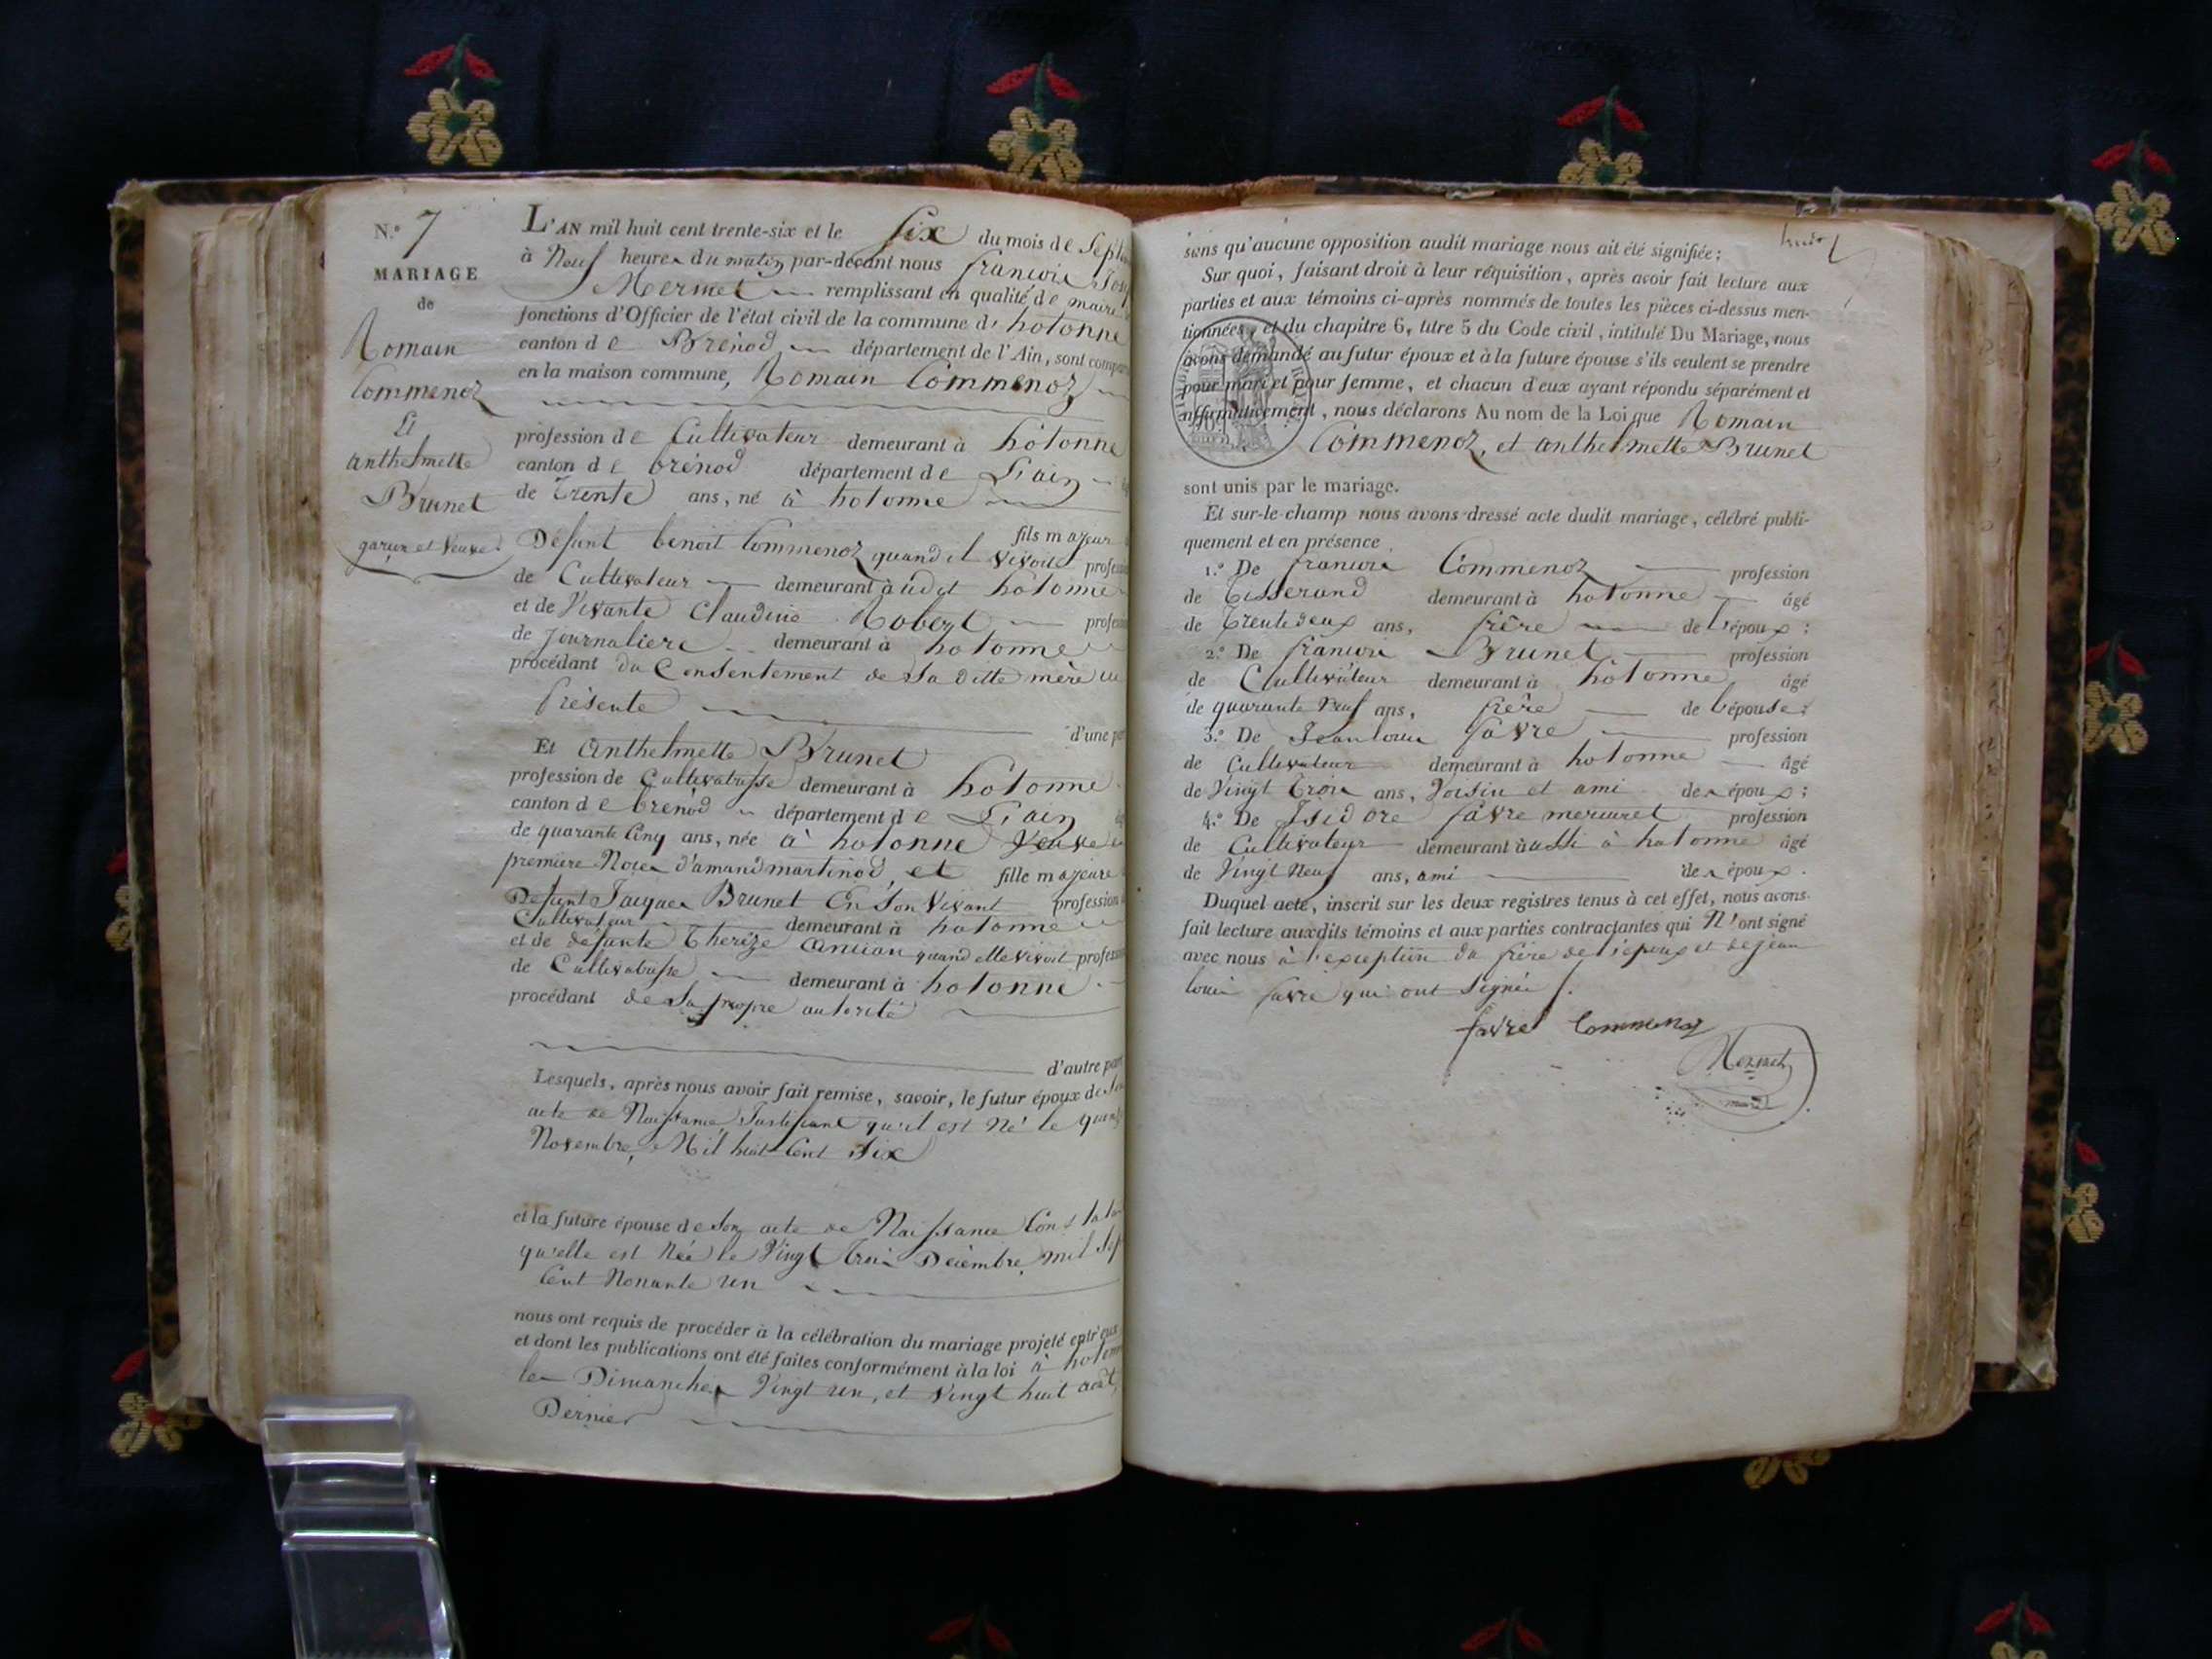 N.° 7
MARIAGE
de
Romain
Commenoz
Et
anthelmette
Brunet
garçon et Veuve.
L'AN mil huit cent trente-six et le Six du mois de Sept
à Neuf heures du matin par-devant nous francois
Mermet remplissant en qualité de maire
fonctions d'Officier de l'état civil de la commune d' hotonne
canton de Brénod département de l'Ain, sont compar
en la maison commune, Romain Commenoz
profession de Cultivateur demeurant à hotonne
canton de brénod département de L'ain
de Trente ans, né à hotonne
fils majeur
Défunt benoit Commenoz quand il vivoit profess
de Cultivateur demeurant à udit hotonne
et de Vivante Claudine Robert profess
de Journaliere demeurant à hotonne
procédant du Consentement de Sa ditte mère
Présente
d'une par
Et Anthelmette Brunet
profession de Cultivatrisse demeurant à hotonne
canton de brénod département de L'ain
de quarante Cinq ans, née à hotonne Veuve
premiere Noces d'amand martinod et fille majeure
Defunt Jacques Brunet En Son Vivant profession
Cultivateur demeurant à hotonne
et de défunte Thérèze Ancian quand elle vivoit profession
de Cultivatrisse demeurant à hotonne
procédant de Sa propre autorité
d'autre part
Lesquels, après nous avoir fait remise, savoir, le futur époux de Son
acte de Naissance Justifiant qu'il est Né le
Novembre, Mil huit Cent Six
et la future épouse de Son acte de Naissance Constatan
qu'elle est Née le Vingt trois Décembre mil Sept
Cent Nonante un
nous ont requis de procéder à la célébration du mariage projeté entr'eux
et dont les publications ont été faites conformément à la loi à hotonne
les Dimanches Vingt un, et Vingt huit août,
Dernier
sions qu'aucune opposition audit mariage nous ait été signifiée;
Sur quoi, faisant droit à leur réquisition, après avoir fait lecture aux
parties et aux témoins ci-après nommés de toutes les pièces ci-dessus men-
tionnées, et du chapitre 6, titre 5 du Code civil, intitulé Du Mariage, nous
avons demandé au futur époux et à la future épouse s'ils veulent se prendre
pour mari et pour femme, et chacun d'eux ayant répondu séparément et
affirmativement, nous déclarons Au nom de la Loi que Romain
Commenoz, et anthelmette Brunet
sont unis par le mariage.
Et sur-le-champ nous avons dressé acte dudit mariage, célébré publi-
quement et en présence
1.° De francois Commenoz profession
de Tisserand demeurant à hotonne âgé
de Trente deux ans, frère de l'époux;
2.° De francois Brunet profession
de Cultivateur demeurant à hotonne âgé
de quarante Neuf ans, frère de l'épouse;
3.° De Jean louis favre profession
de Cultivateur demeurant à hotonne âgé
de Vingt Trois ans, Voisin et ami des époux;
4.° De Isidore favre mercuret profession
de Cultivateur demeurant aussi à hotonne âgé
de Vingt Neuf ans, ami des époux.
Duquel acte, inscrit sur les deux registres tenus à cet effet, nous avons
fait lecture auxdits témoins et aux parties contractantes qui N'ont signé
avec nous à l'exception du frère de l'époux et de jean
louis favre qui ont Signés.
favre Commenoz
Mermet
maire